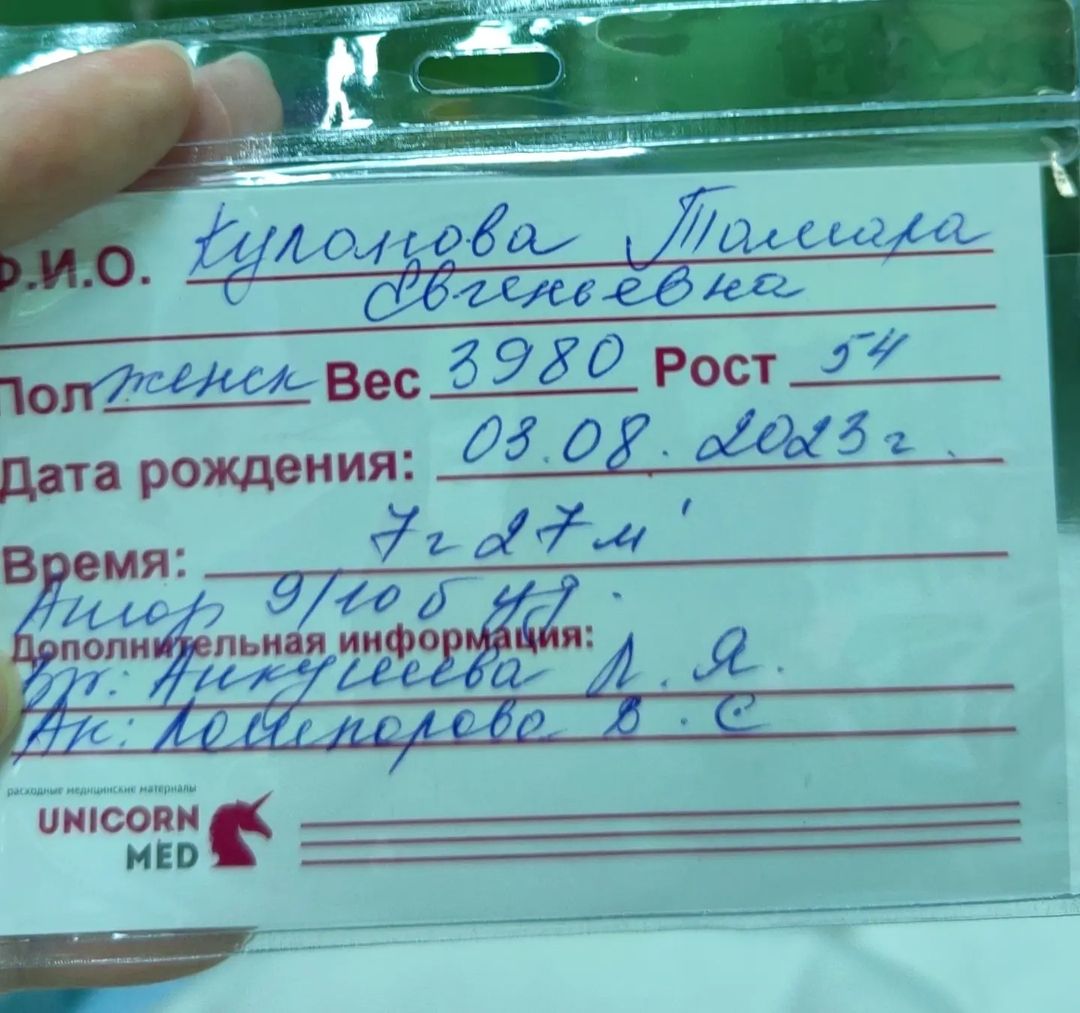 Ф.И.О. Куломова Тамара
Евгеньевна
Пол женск Вес 3980 Рост 54
Дата рождения: 03.08.2023г.
Время: 7г 27м
Апгар 9/10 б
Дополнительная информация:
Вр: Анкушева Л. Я.
Ак: В. С
расходные медицинские материалы
UNICORN
MED